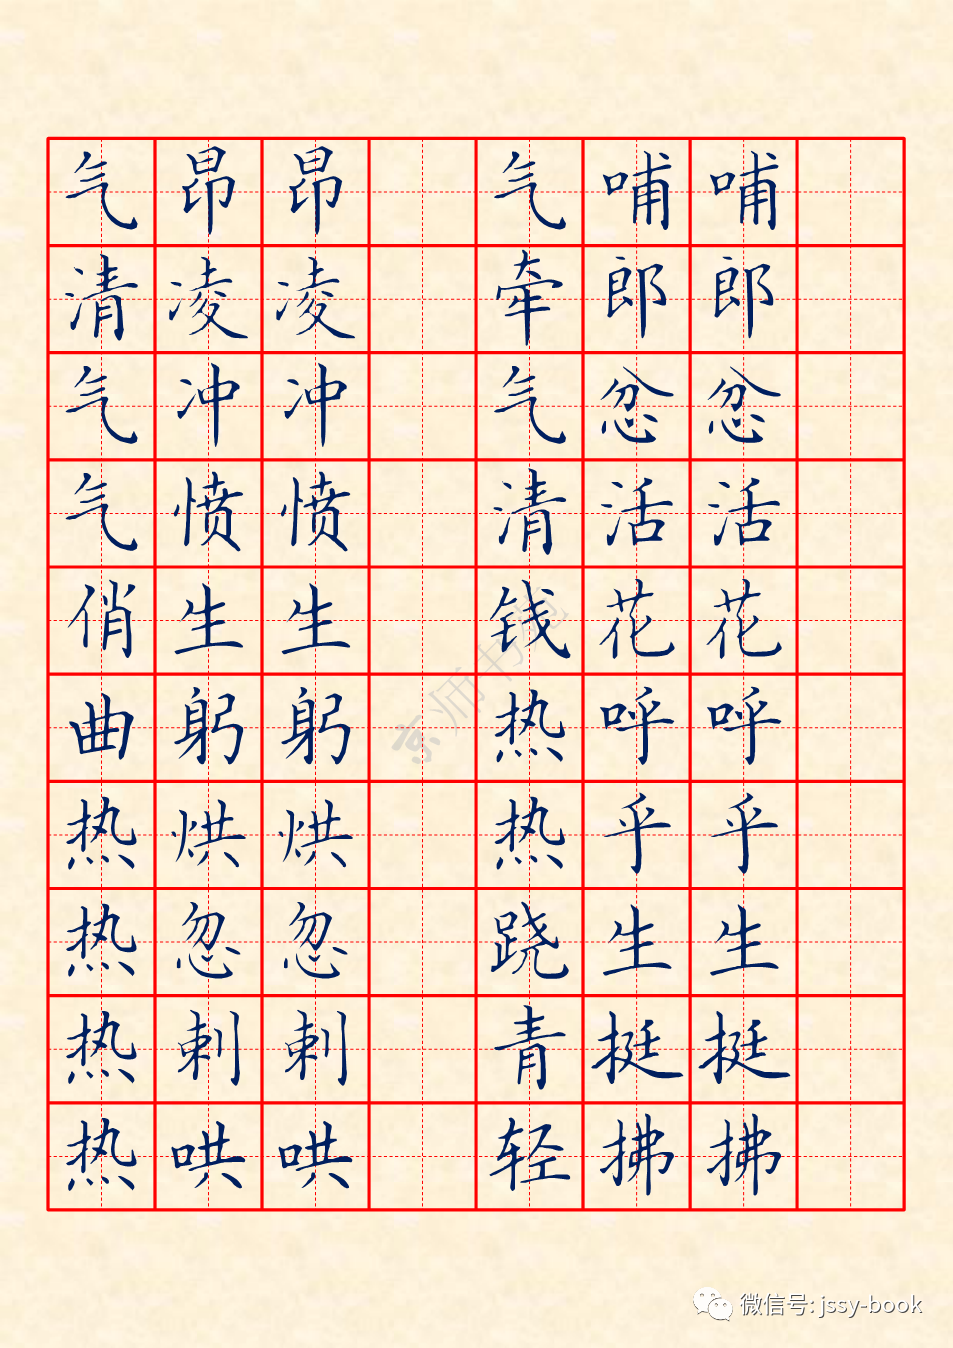 气昂昂 气哺哺
清凌凌 牵郎郎
气冲冲 气忿忿
气愤愤 清活活
俏生生 钱花花
曲躬躬 热呼呼
热烘烘 热乎乎
热忽忽 跷生生
热剌剌 青挺挺
热哄哄 轻拂拂
京师书苑
微信号: jssy-book